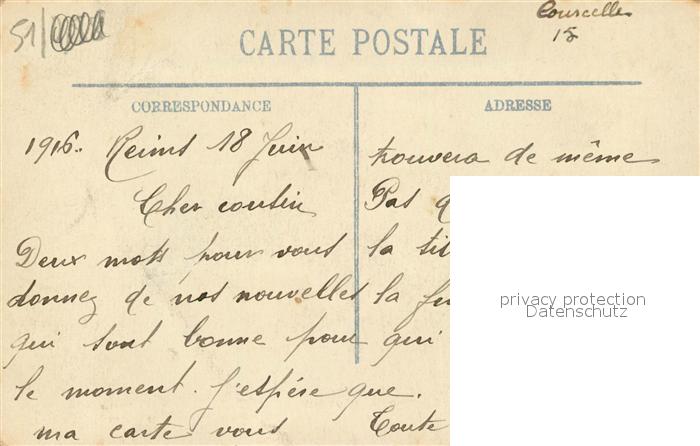 51/
Courcelles
15
CARTE POSTALE
CORRESPONDANCE
ADRESSE
1916. Reims 18 Juin
Cher cousin
Deux mots pour vous
donnez de nos nouvelles
qui sont bonne pour
le moment. J'espére que.
ma carte vous
trouvera de même
Pas
la
la
qui
Toute
privacy protection
Datenschutz